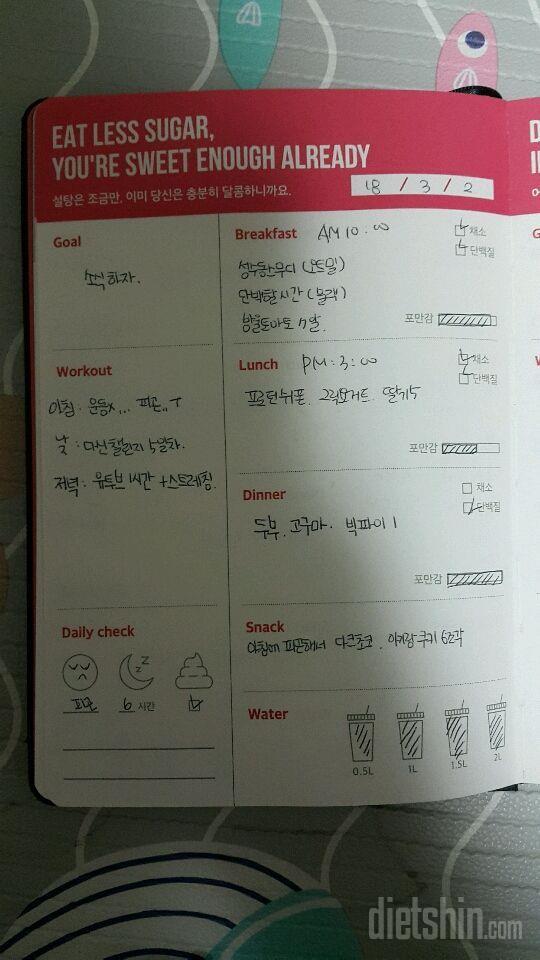 EAT LESS SUGAR,
YOU'RE SWEET ENOUGH ALREADY
설탕은 조금만, 이미 당신은 충분히 달콤하니까요.
18 / 3 / 2
Goal
소식하자.
Workout
아침: 운동x... 피곤..ㅜ
낮: 다신챌린지 5일차.
저녁: 유투브 1시간 + 스트레칭.
Daily check
피곤
6 시간
Breakfast AM 10:00
채소
단백질
성수동스무디 (오트밀)
단백할시간 (블랙)
방울토마토 7알.
포만감
Lunch PM:3:00
채소
단백질
그릭요거트. 딸기5
포만감
Dinner
채소
단백질
두부. 고구마. 빅파이 1
포만감
Snack
아침에 피곤해서 다크초코. 쿠키 6조각
Water
0.5L
1L
1.5L
2L
D
G
dietshin.com